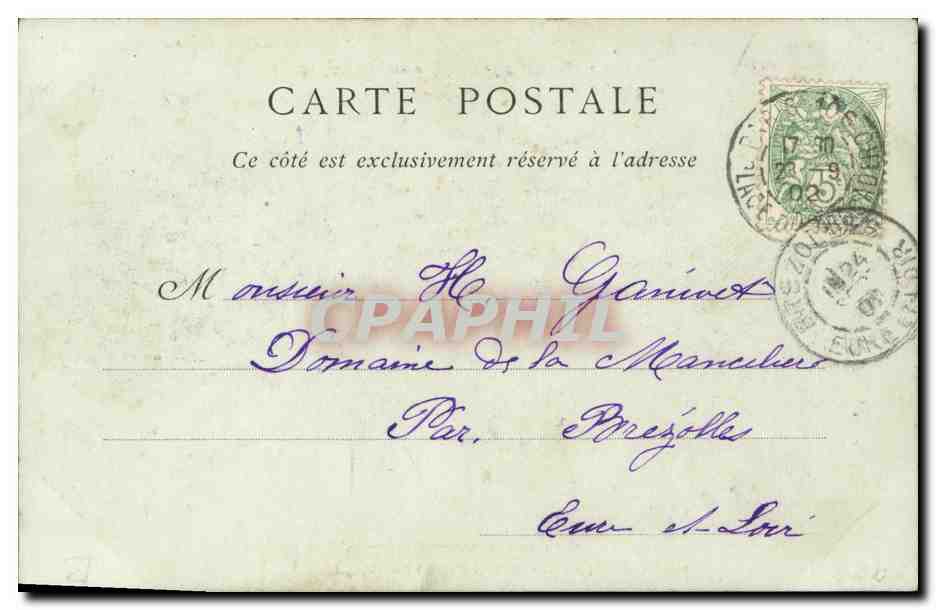 CARTE POSTALE
Ce côté est exclusivement réservé à l'adresse
17 30
9
02
5
BREZOLLES
24
EURE ET LOIR
Monsieur H Ganivet
CPAPHIL
Domaine de la Mancelière
Par. Brézolles
Eure et-Loir